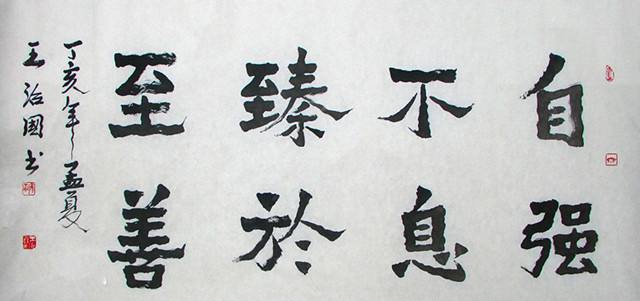 自强
不息
臻於
至善
丁亥年孟夏
王治國书